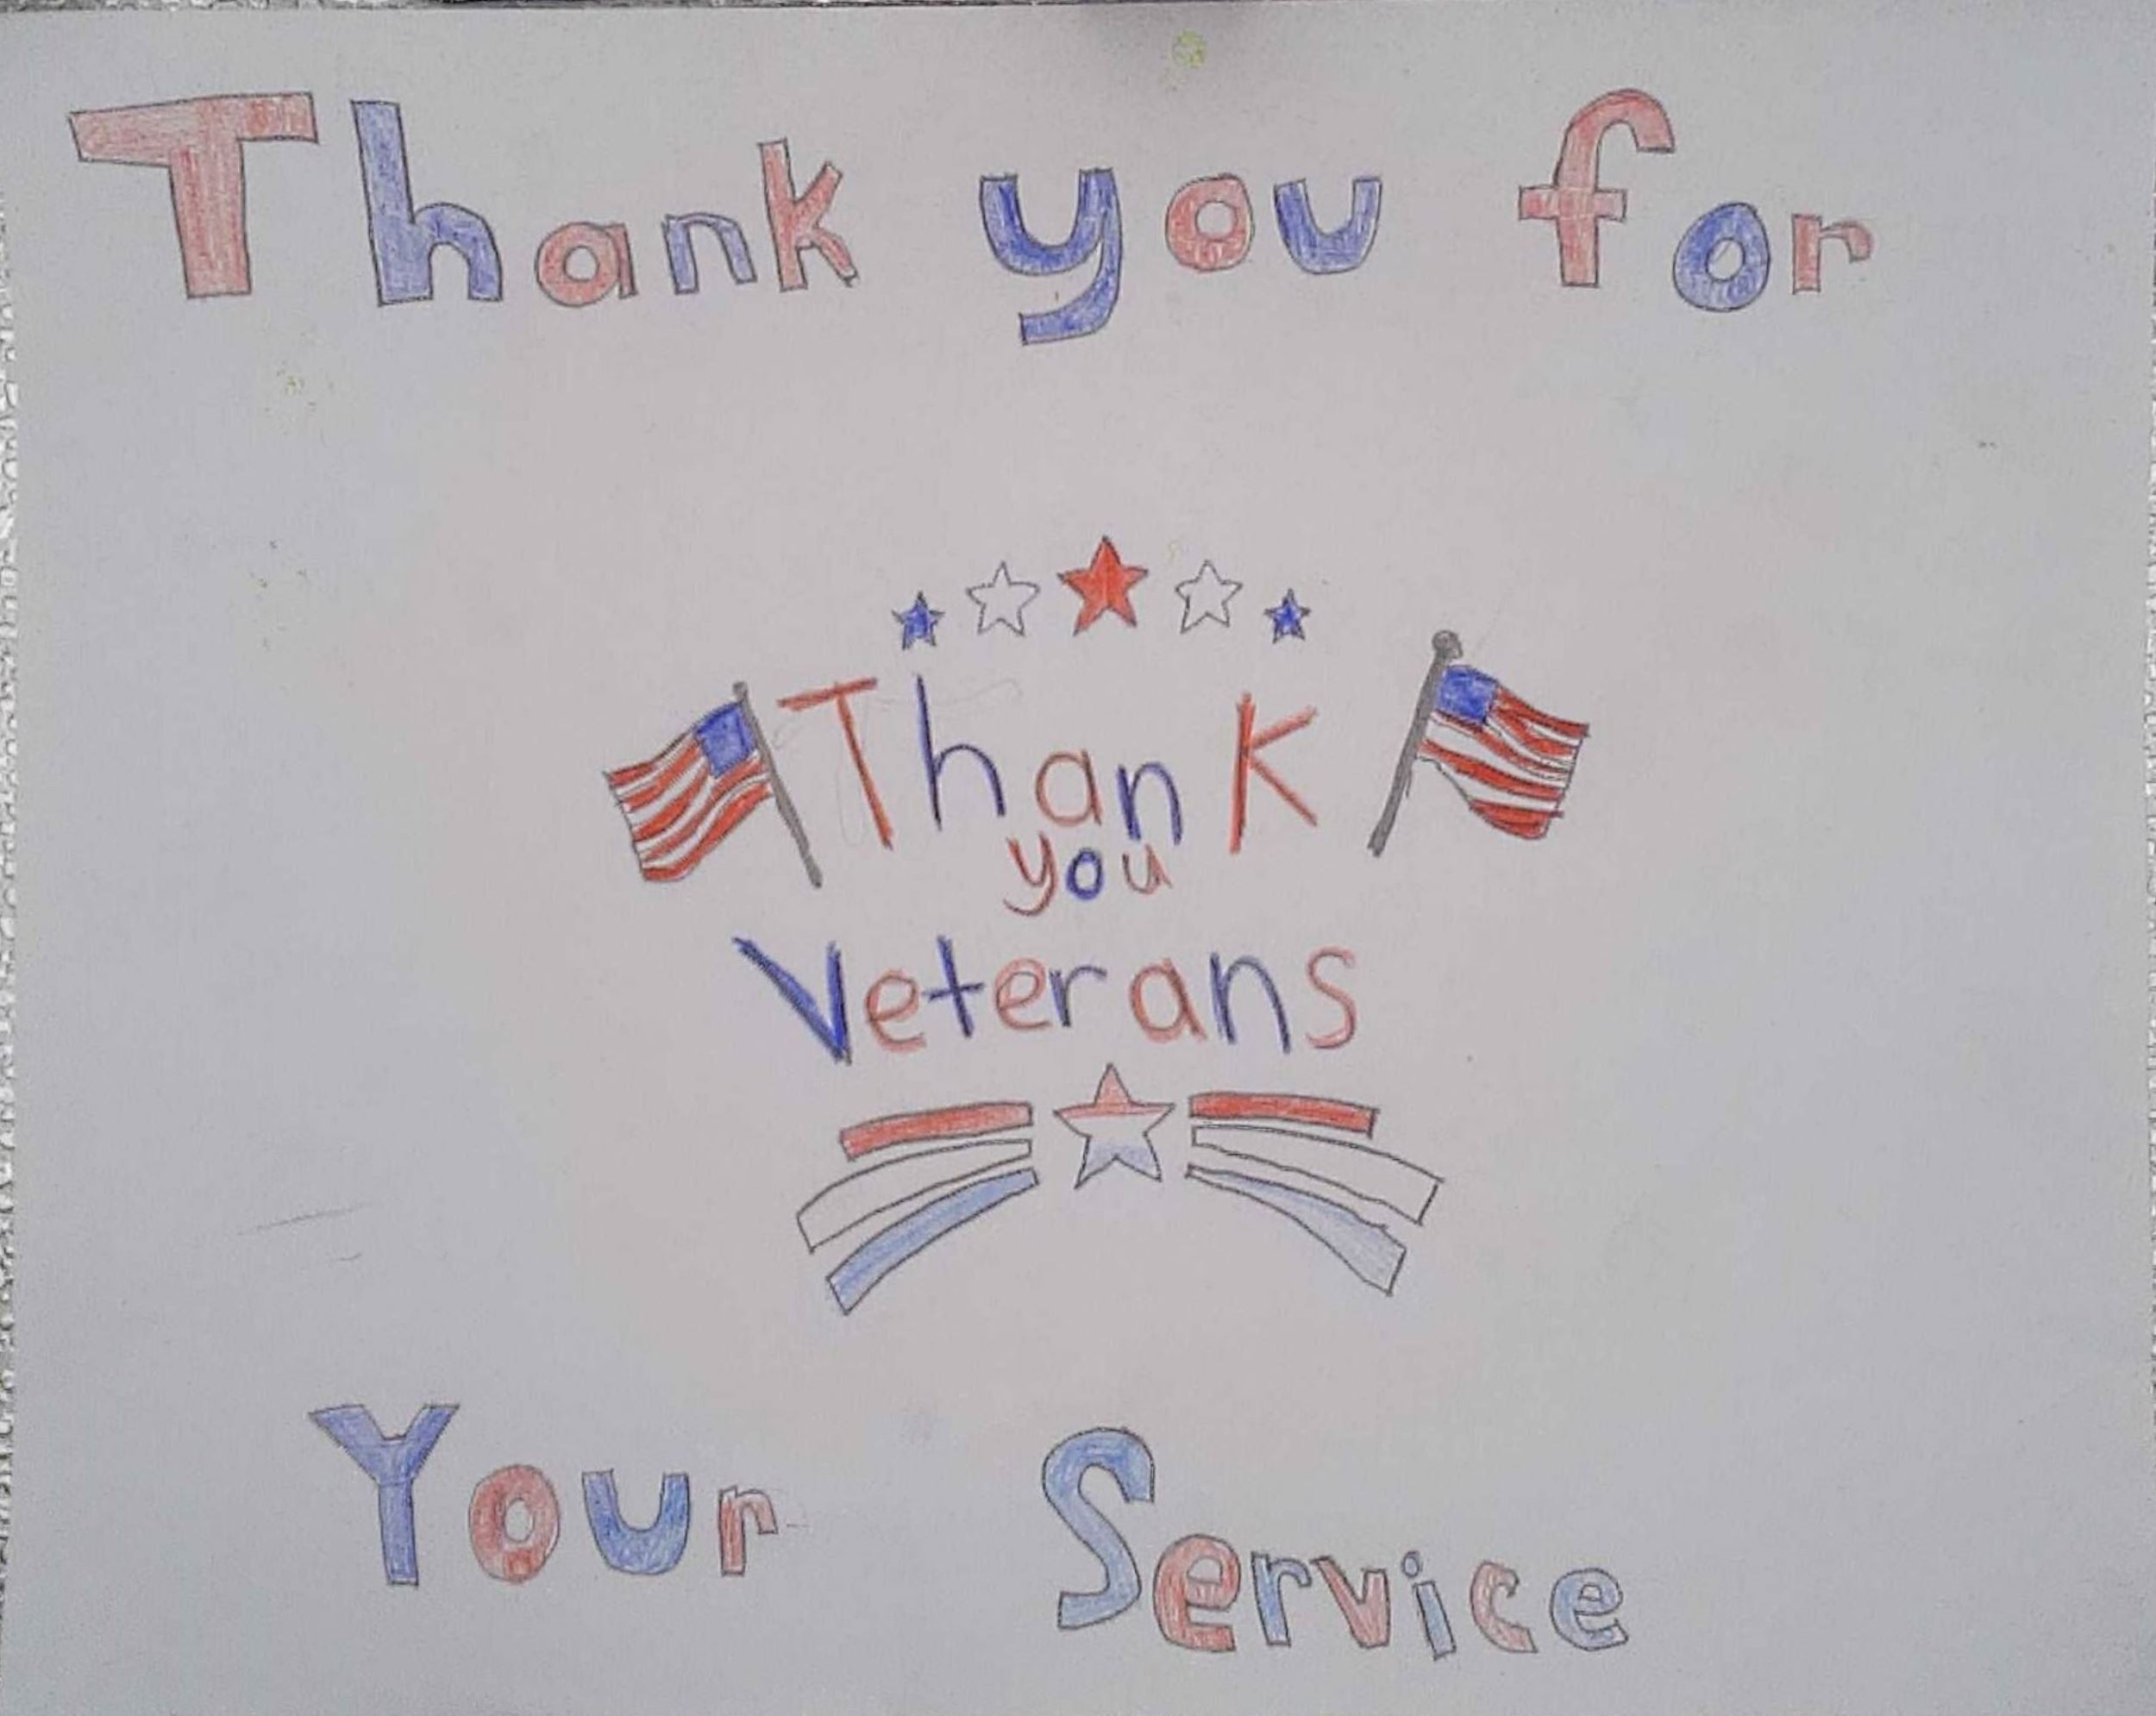 Thank you for
Thank
you
Veterans
Your Service